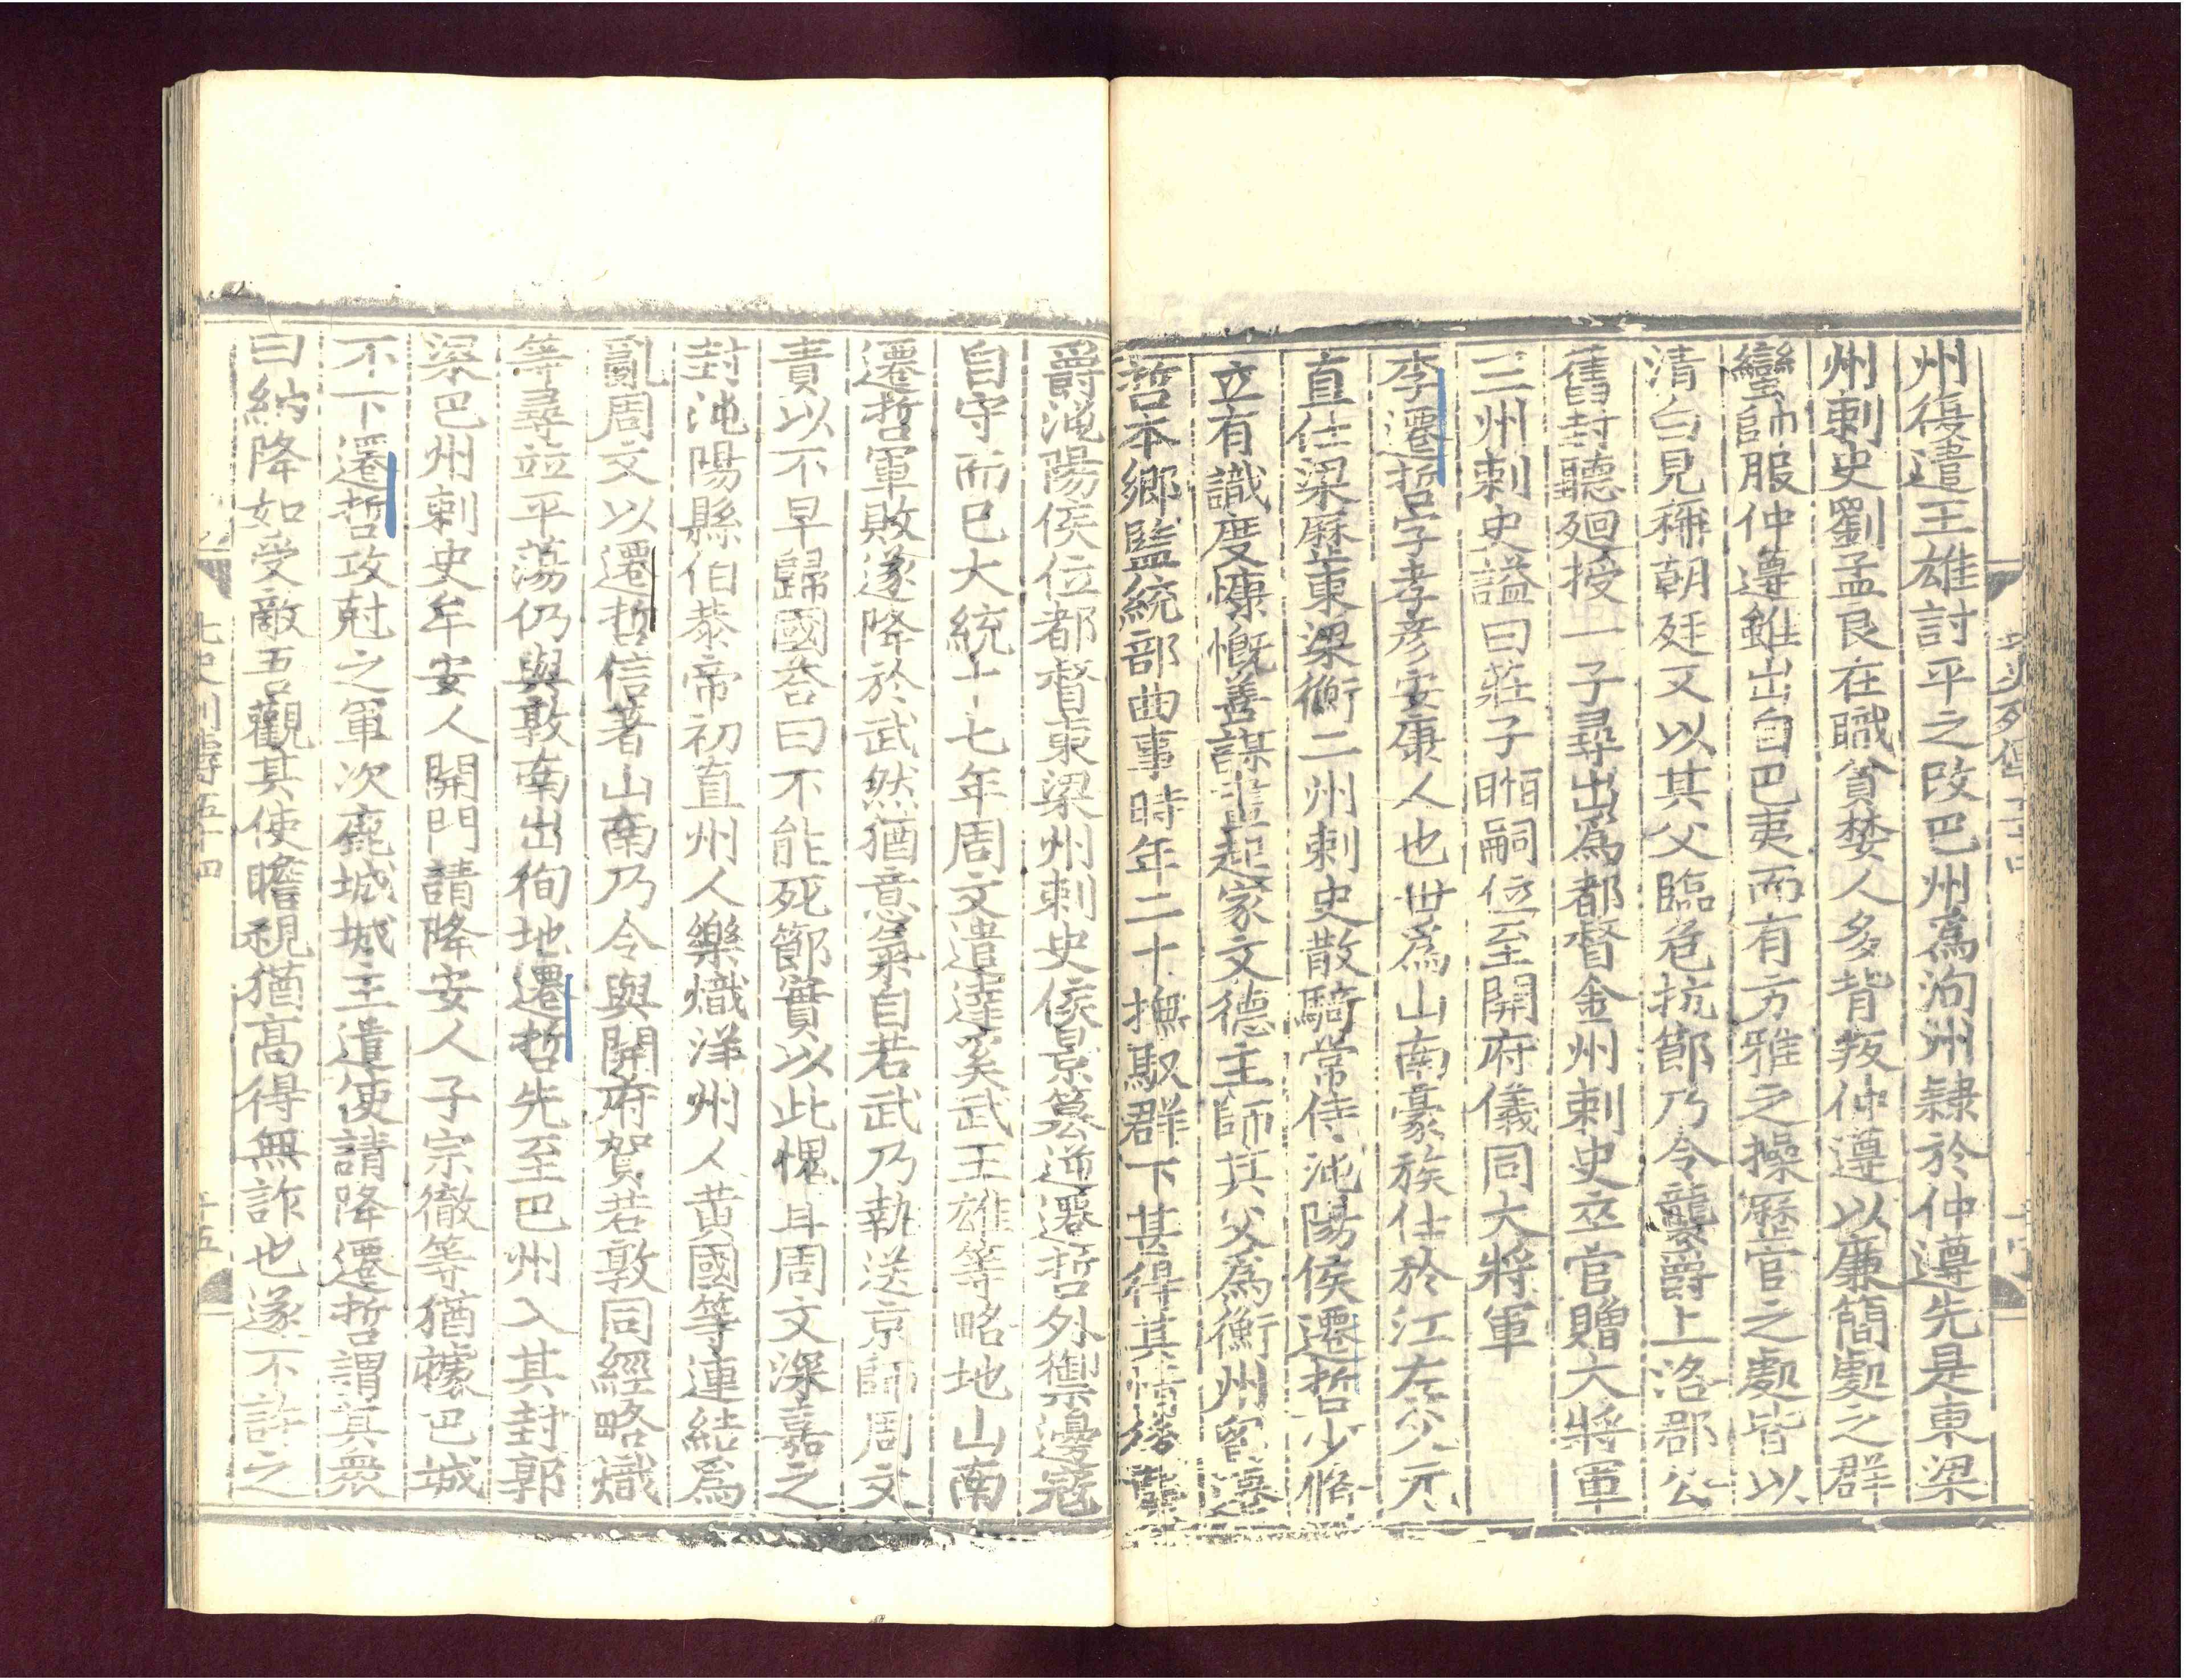 州復遣王雄討平之改巴州爲洵州隷於仲遵先是東梁
州刺史劉孟良在職貪婪人多背叛仲遵以廉簡處之群
蠻帥服仲遵雖出自巴夷而有方雅之操歷官之處皆以
清白見稱朝廷又以其父臨危抗節乃令襲爵上洛郡公
舊封聽廻授一子尋出爲都督金州刺史卒官贈大將軍
三州刺史謚曰莊子暅嗣位至開府儀同大將軍
李遷哲字孝彦安康人也世爲山南豪族仕於江左父元
直仕梁歷東梁衡二州刺史散騎常侍沌陽侯遷哲少脩
立有識度慷慨善謀畫起家文德主帥其父爲衡州留遷
哲本鄉監統部曲事時年二十撫馭群下甚得其情後襲
爵沌陽侯位都督東梁州刺史侯景篡逆遷哲外禦邊寇
自守而已大統十七年周文遣達奚武王雄等略地山南
遷哲軍敗遂降於武然猶意氣自若武乃執送京師周文
責以不早歸國荅曰不能死節實以此愧耳周文深嘉之
封沌陽縣伯恭帝初直州人樂熾洋州人黄國等連結爲
亂周文以遷哲信著山南乃令與開府賀若敦同經略熾
等尋並平蕩仍與敦南出徇地遷哲先至巴州入其封郭
梁巴州刺史牟安人開門請降安人子宗徹等猶據巴城
不下遷哲攻尅之軍次鹿城城主遣使請降遷哲謂其衆
曰納降如受敵吾觀其使瞻視猶高得無詐也遂不許之
北史列傳五十四
十五